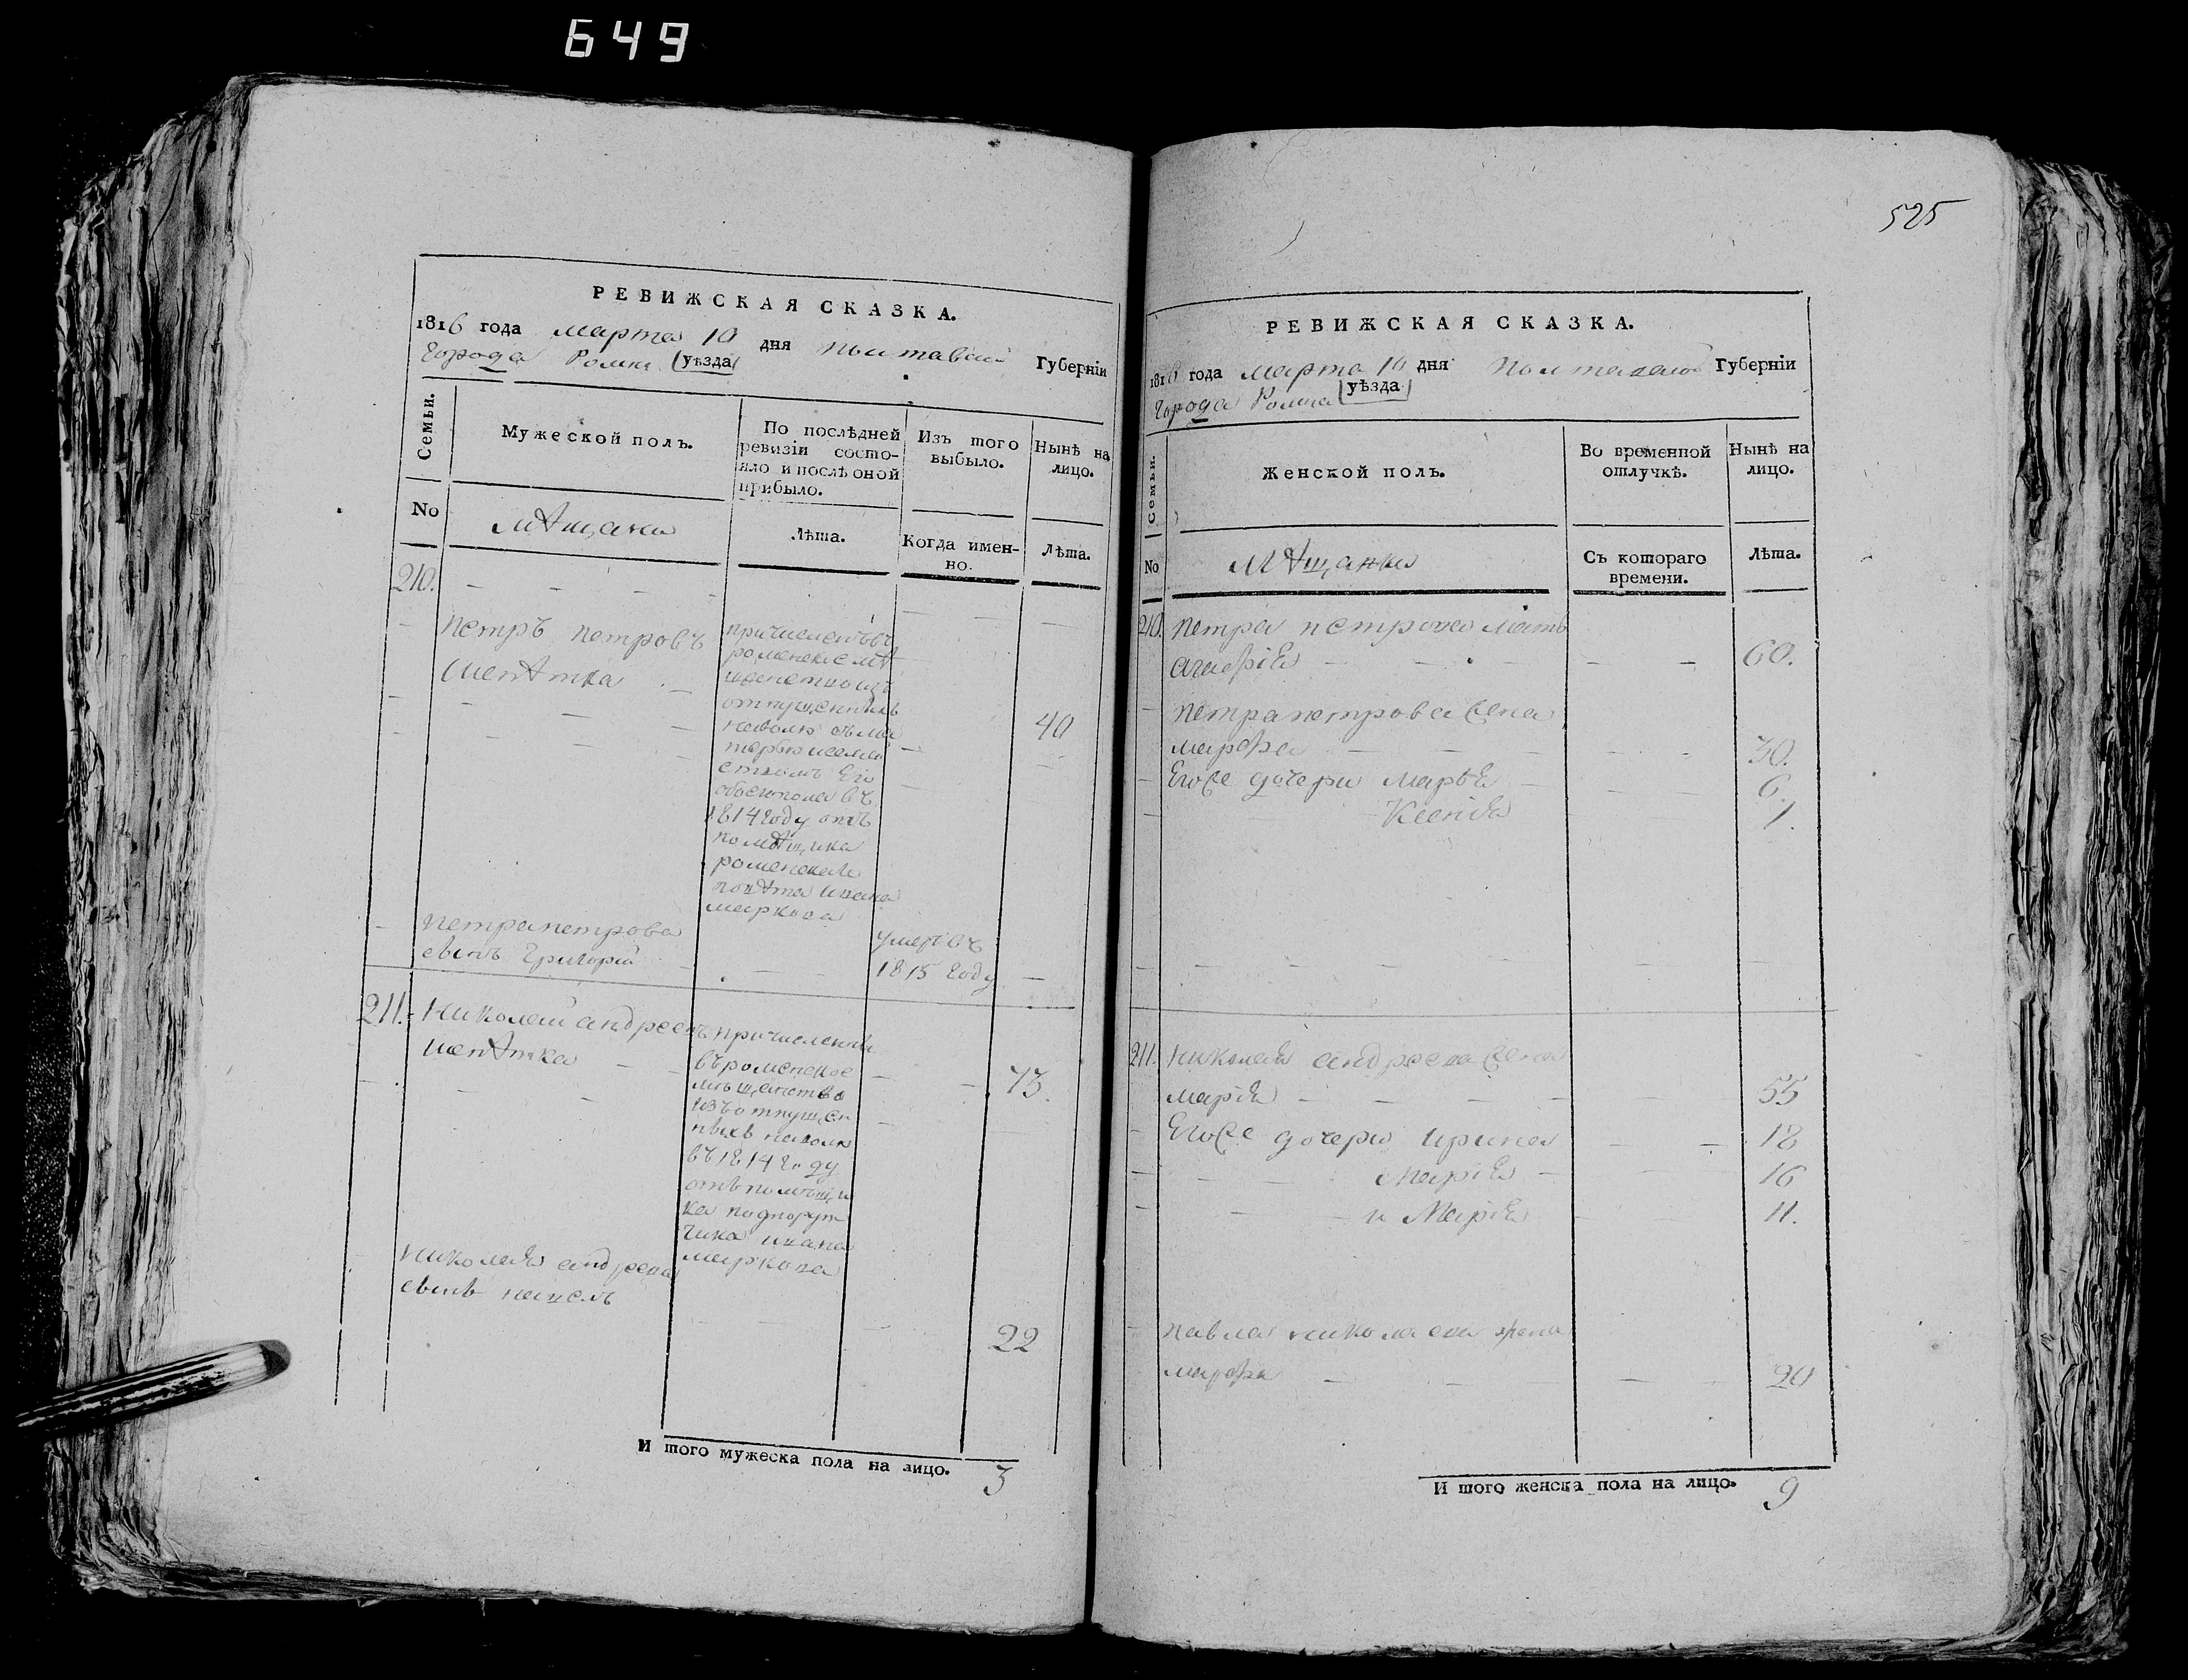 649
РЕВИЖСКАЯ СКАЗКА.
1816 года марта 10 дня Полтавской Губерніи
Города Ромна уѣзда
Семьи.
Мужеской полъ.
По послѣдней ревизіи состо-
яло и послѣ оной
прибыло.
Изъ того
выбыло.
Нынѣ на
лицо.
No
мѣщане
Лѣта.
Когда имен-
но.
Лѣта.
210.
Петръ Петровъ
Шепѣтка
причисленъ въ
роменское мѣ
щанство изъ
отпущенныхъ
наволю съ ма
терью и семей
ством его
обоего пола въ
1814 году отъ
помѣщика
роменскаго
повѣта ивана
маркова
40
Петра петрова
сынъ Григорій
умеръ въ
1815 году
211.
Николай андреевъ
шепѣтка
причисленъ
въ роменское
мѣщанство
изъ отпущен
ныхъ наволю
въ 1814 году
отъ помѣщи
ка подпорут
чика ивана
маркова
73.
Николая андреева
сынъ павелъ
22
И того мужеска пола на лицо. 3
525
РЕВИЖСКАЯ СКАЗКА.
1816 года марта 10 дня Полтавской Губерніи
Города Ромна уѣзда
Семьи.
Женской полъ.
Во временной
отлучкѣ.
Нынѣ на
лицо.
No
Мѣщанки
Съ котораго
времени.
Лѣта.
210. Петра петрова мать
60.
Петра петрова жена
марфа 30.
Его же дочери марья 6.
Ксенія 1.
211. Николая андреева жена
марія 55
Его же дочери ирина 18
Марія 16
и Марія 11.
павла николаева жена
марфа 20
И того женска пола на лицо. 9